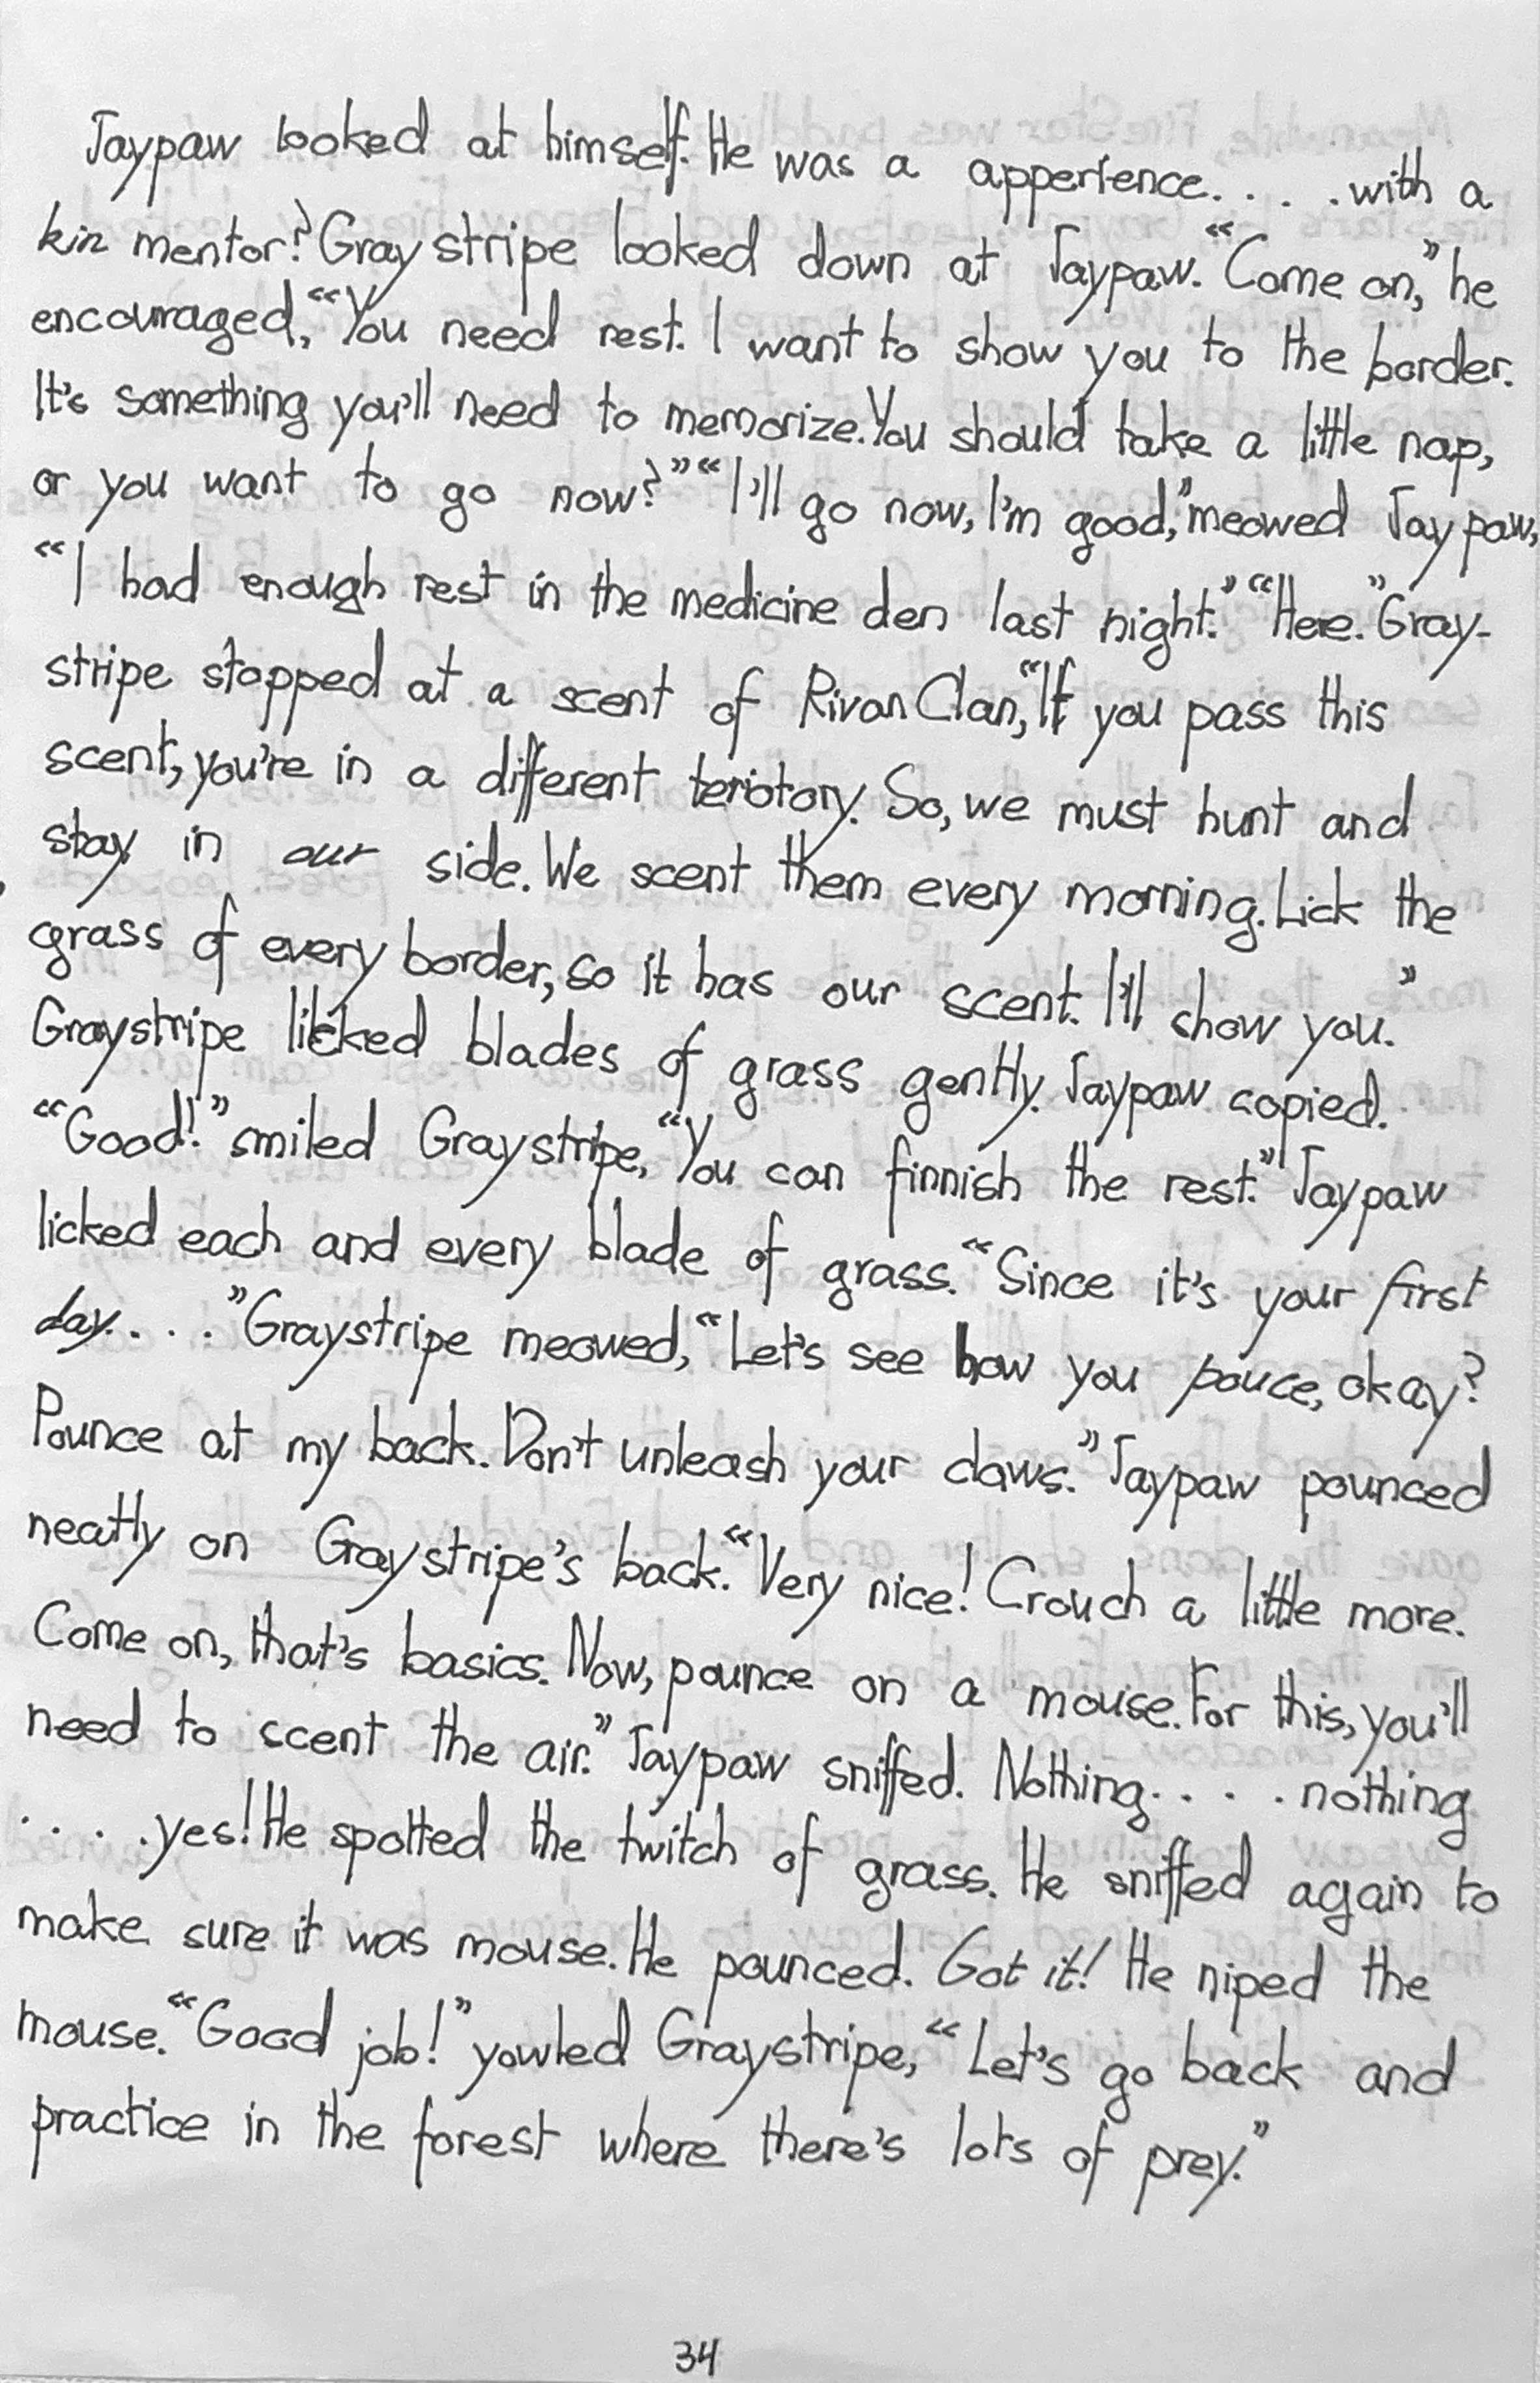 Jaypaw looked at himself. He was a apperience. . . . with a
kin mentor? Graystripe looked down at Jaypaw. “Come on,” he
encouraged, “You need rest. I want to show you to the border.
It's something you'll need to memorize. You should take a little nap,
or you want to go now?” “I'll go now, I'm good,” meowed Jaypaw,
“I had enough rest in the medicine den last night.” “Here.” Gray-
stripe stopped at a scent of RivanClan, “If you pass this
scent, you're in a different teriotory. So, we must hunt and
stay in our side. We scent them every morning. Lick the
grass of every border, so it has our scent. I'll show you.”
Graystripe licked blades of grass gently. Jaypaw copied.
“Good!” smiled Graystripe, “You can finnish the rest.” Jaypaw
licked each and every blade of grass. “Since it's your first
day. . . .” Graystripe meowed, “Let's see how you pouce, okay?
Pounce at my back. Don't unleash your claws.” Jaypaw pounced
neatly on Graystripe's back. “Very nice! Crouch a little more.
Come on, that's basics. Now, pounce on a mouse. For this, you'll
need to scent the air.” Jaypaw sniffed. Nothing. . . . nothing
. . . . yes! He spotted the twitch of grass. He sniffed again to
make sure it was mouse. He pounced. Got it! He niped the
mouse. “Good job!” yowled Graystripe, “Let's go back and
practice in the forest where there's lots of prey.”
34